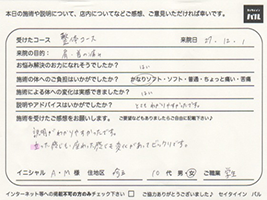 本日の施術や説明について、店内についてなどご感想、ご意見いただければ幸いです。
受けたコース 整体コース 来院日 27.12.1
来院の目的 肩・首の痛み
お悩み解決のお力になれそうでしたか? はい
施術の体へのご負担はいかがでしたか? かなりソフト・ソフト・普通・ちょっと痛い・苦痛
施術による体への変化は実感できましたか? はい
説明やアドバイスはいかがでしたか? とてもわかりやすかったです。
施術を受けたご感想をお願いします。 ご要望などもありましたらご自由に記載下さい♪
説明がわかりやすかったです。
イニシャル A.M 様 住地区 10代 男 女 ご職業 学生
インターネット等への掲載不可の方のみチェック下さい ご協力ありがとうございました♪ セイタイイン バル